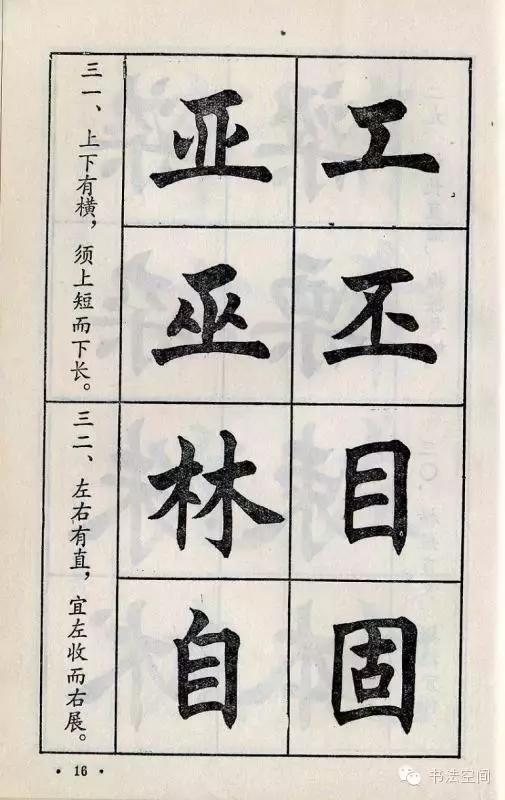 三一、上下有横，须上短而下长。
亚 工
巫 丕
三二、左右有直，宜左收而右展。
林 目
自 固
· 16 ·
书法空间